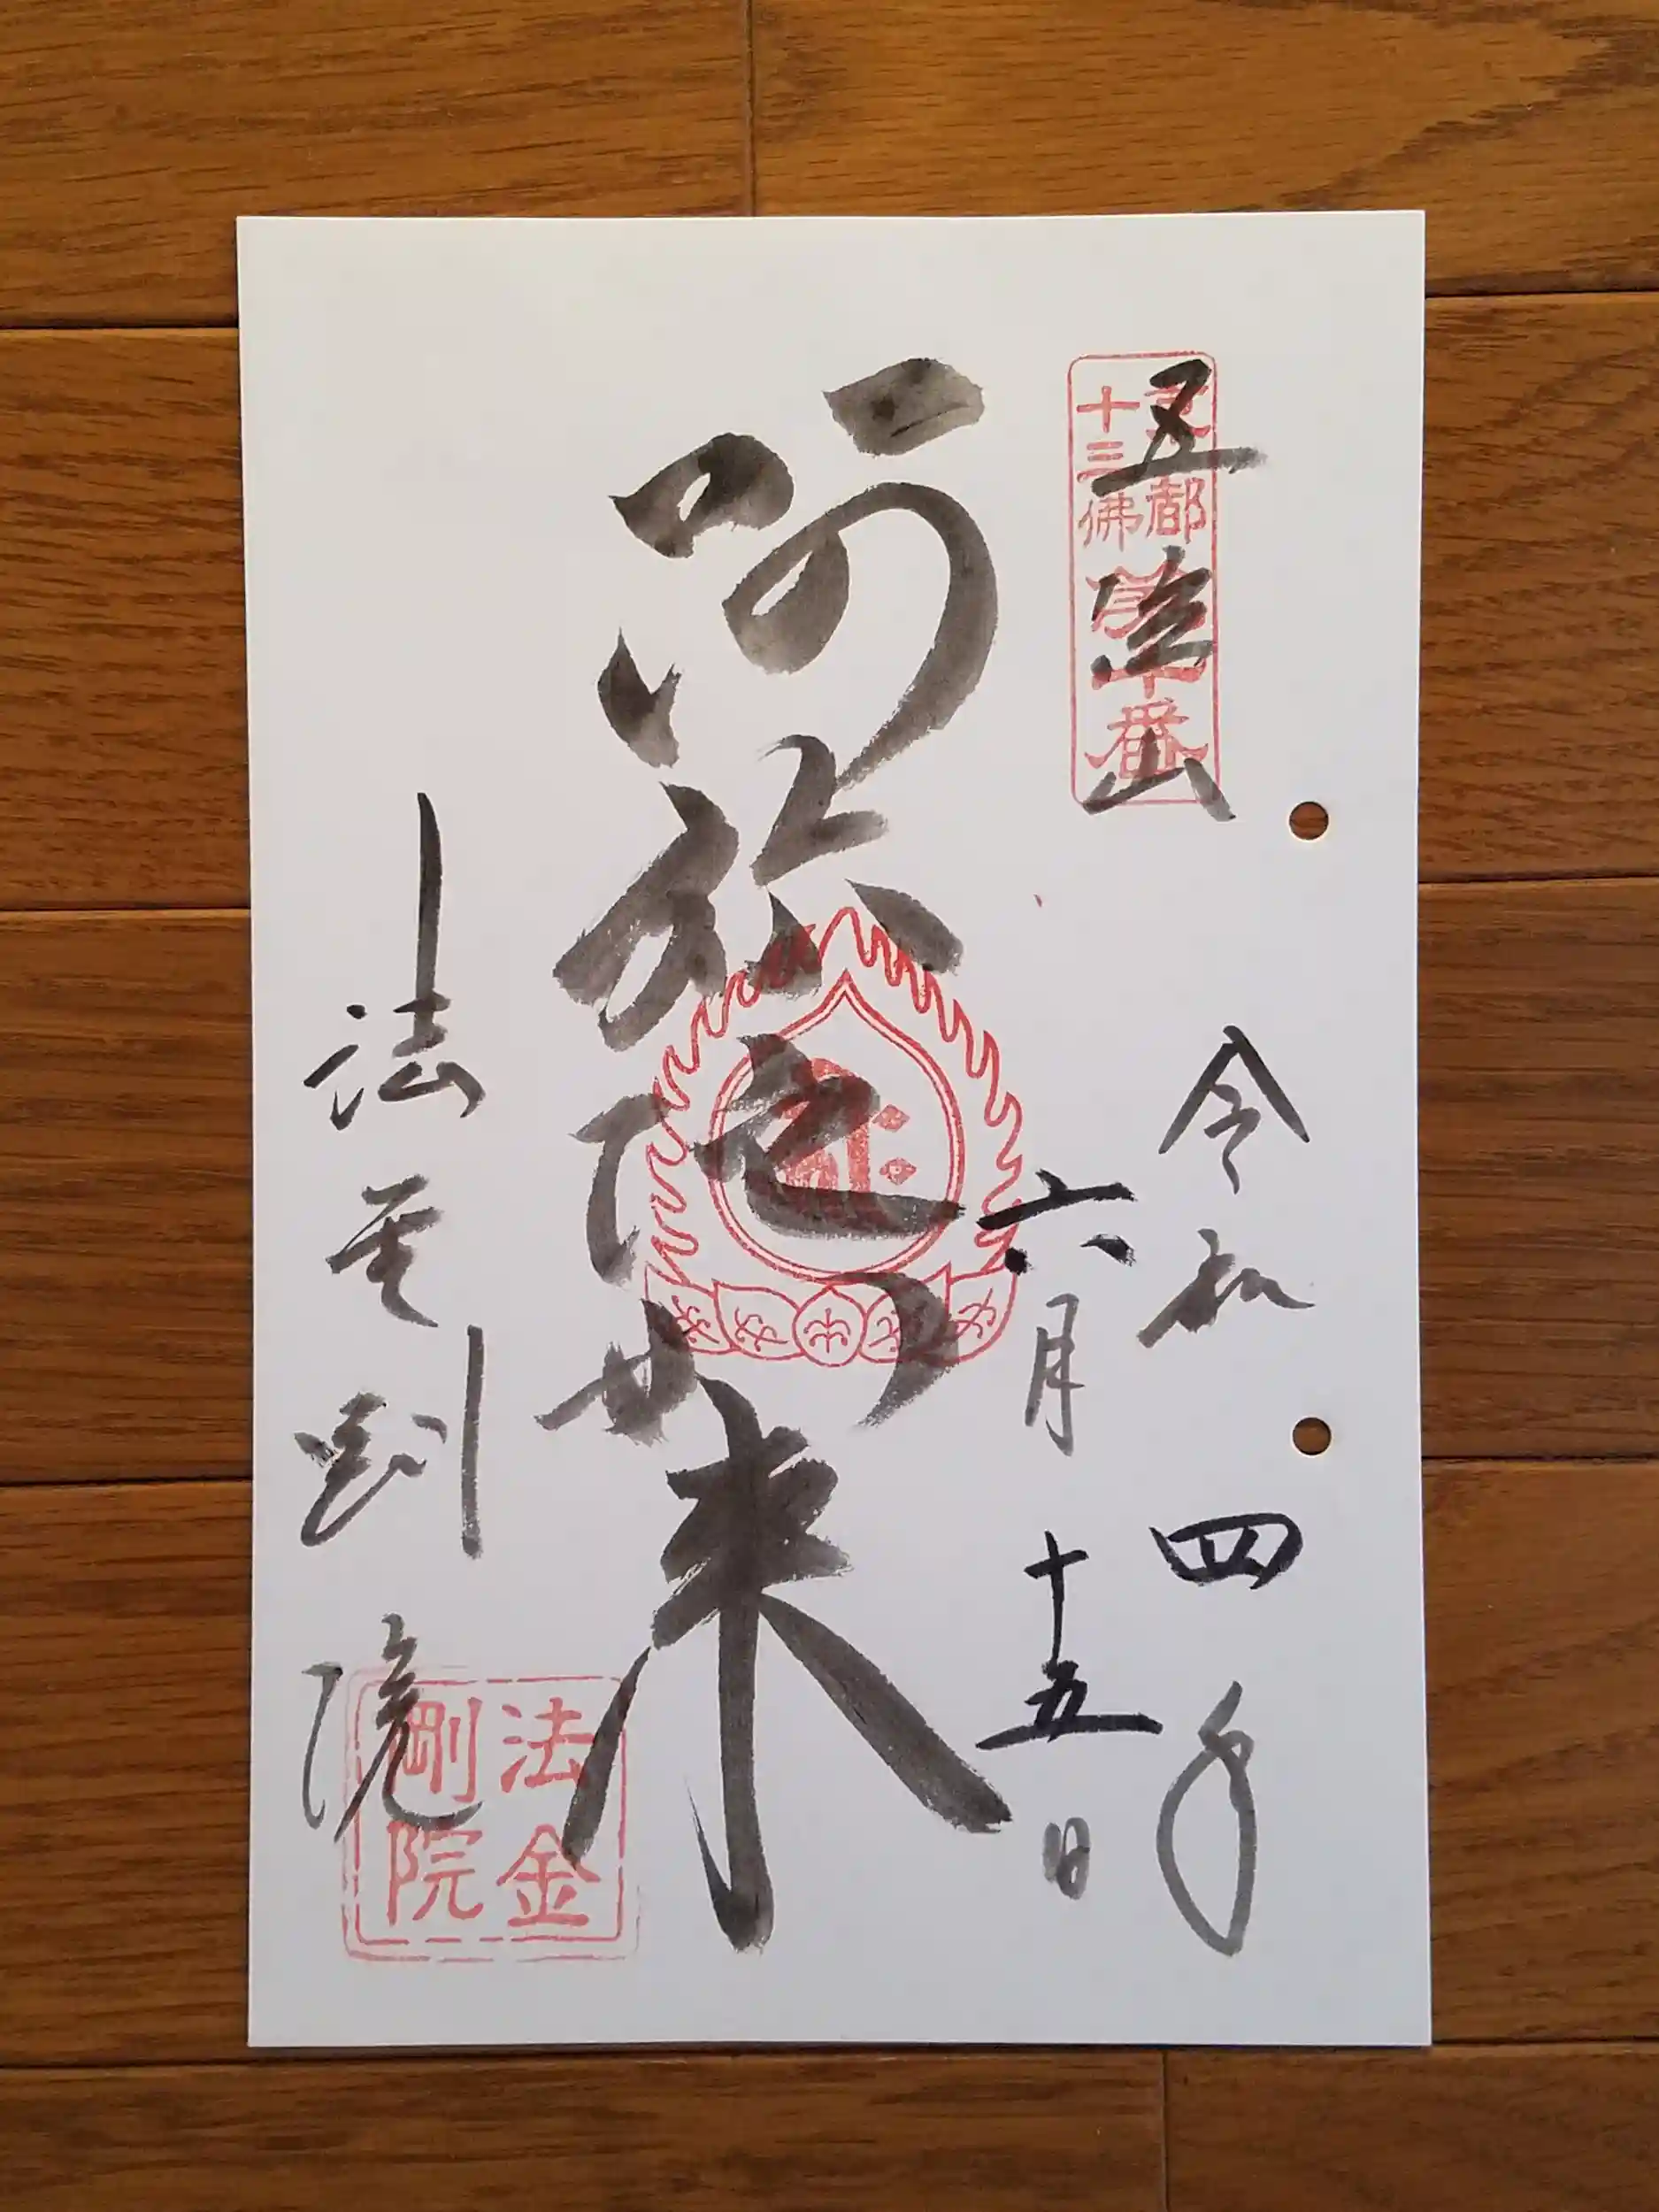 五位山
京都
十三佛
第十番
令和四年
六月十五日
阿弥陀如来
法金剛院
法金
剛院